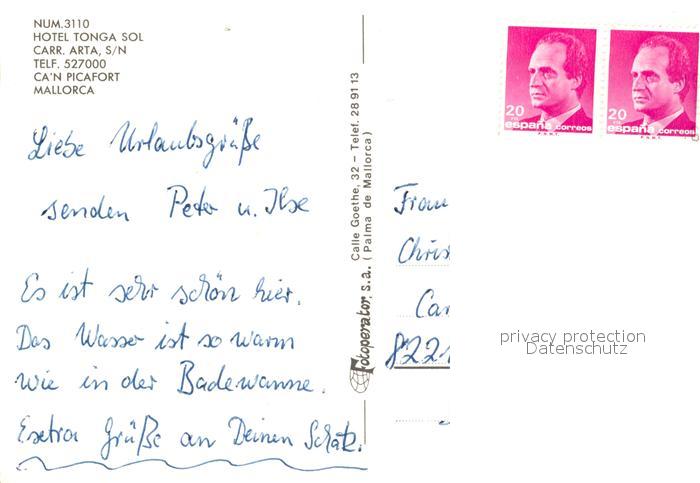 NUM.3110
HOTEL TONGA SOL
CARR. ARTA, S/N
TELF. 527000
CA'N PICAFORT
MALLORCA
Liebe Urlaubsgrüße
senden Peter u. Ilse
Es ist sehr schön hier.
Das Wasser ist so warm
wie in der Badewanne.
Exetra Grüße an Deinen Schatz.
Fotoperator, s.a. Calle Goethe, 32 – Telef. 28 91 13
(Palma de Mallorca)
20 20
PTA PTA
españa correos españa correos
F.N.M.T. F.N.M.T.
Frau
Chris
Car
8221
privacy protection
Datenschutz